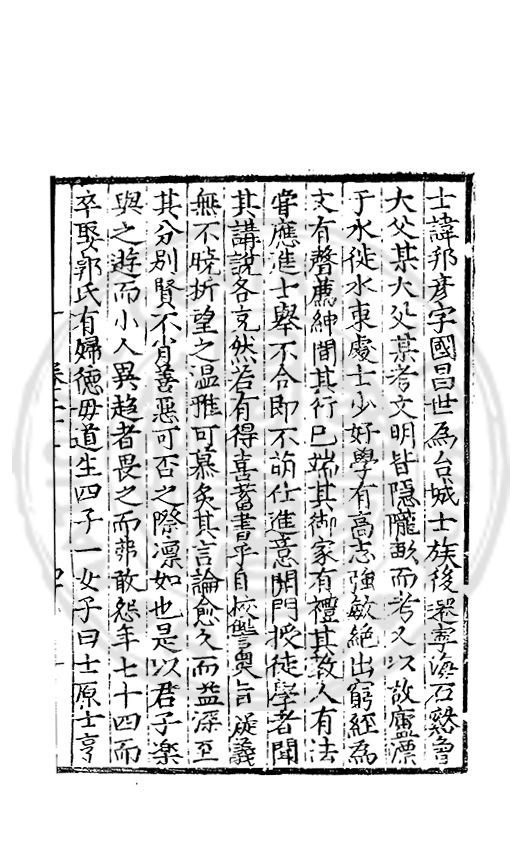 士諱邦彥字國昌世爲台城士族後遷寧海石谿曾
大父某大父某考文明皆隱隴畝而考又以故廬漂
于水徙水東處士少好學有高志強敏絕出窮經為
文有聲薦紳間其行已端其御家有禮其教人有法
嘗應進士舉不合即不萌仕進意開門授徒學者聞
其講說各充然若有得喜蓄書手自校讐奧旨疑義
無不曉折望之温雅可慕炙其言論愈久而益深至
其分別賢不肖善惡可否之際凛如也是以君子樂
與之遊而小人異趣者畏之而弗敢怨年七十四而
卒娶郭氏有婦德毋道生四子一女子曰士原士亨